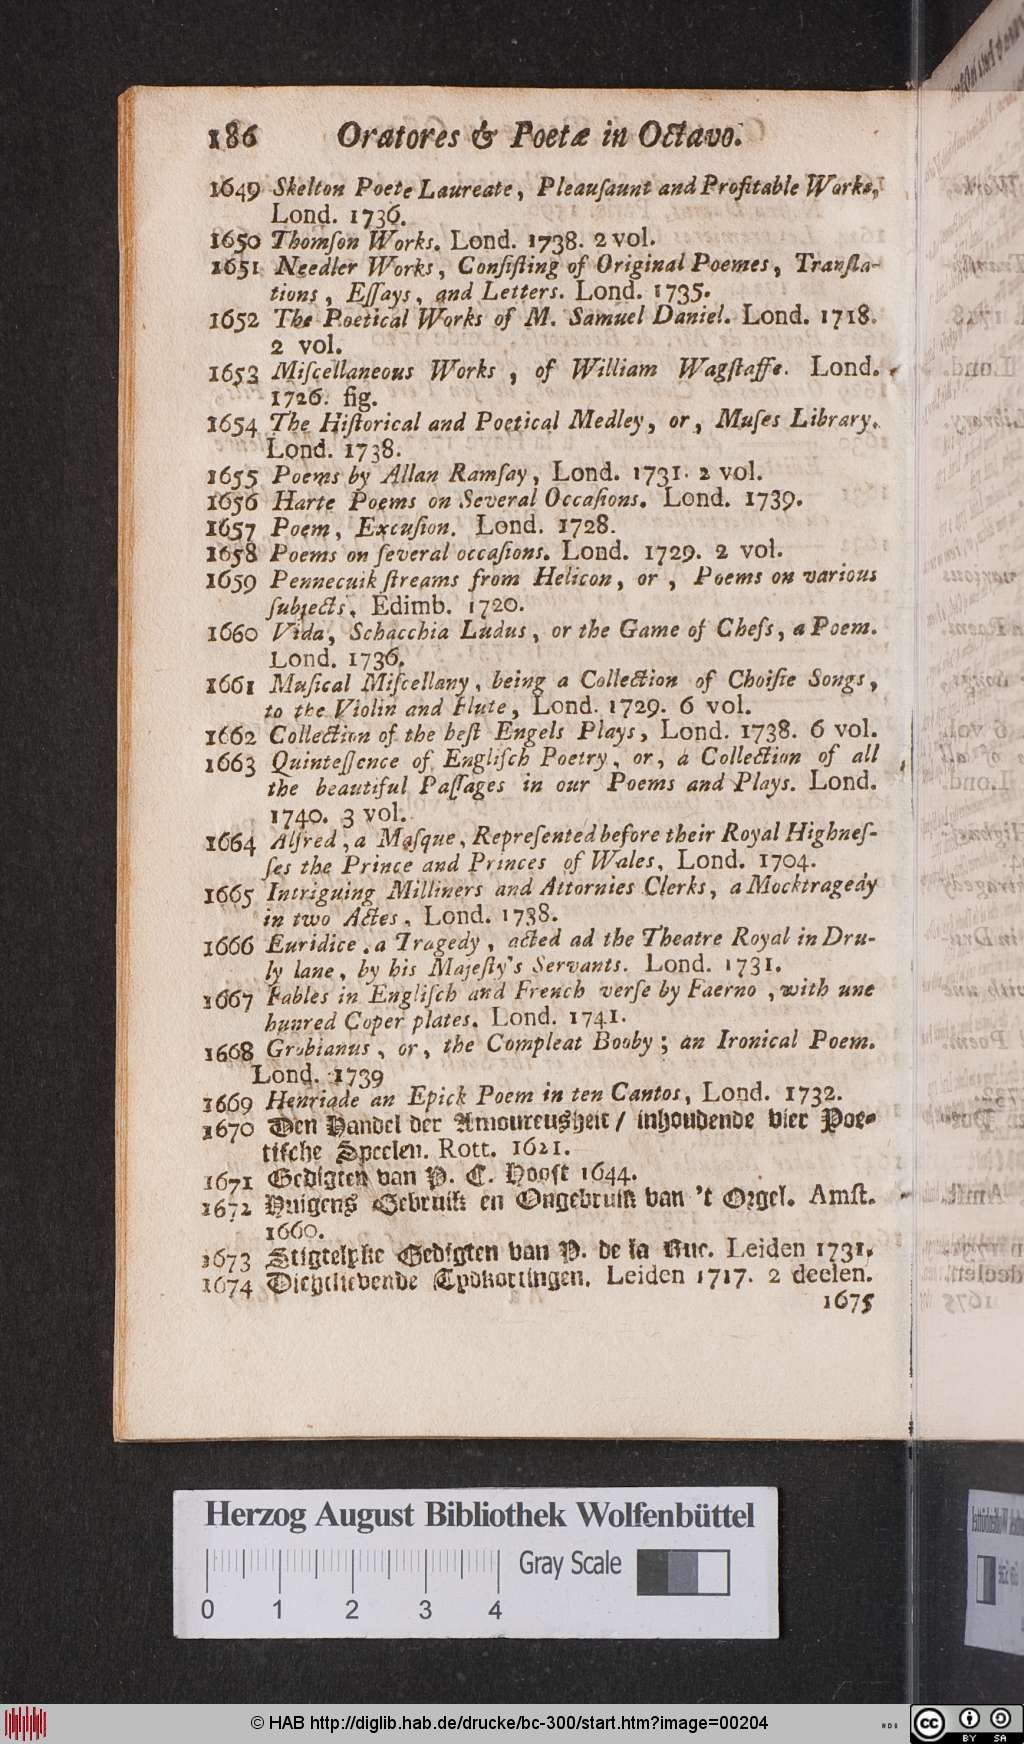 186 Oratores & Poetæ in Octavo.
1649 Skelton Poete Laureate, Pleauſaunt and Profitable Works,
Lond. 1736.
1650 Thomſon Works. Lond. 1738. 2 vol.
1651 Needler Works, Conſiſting of Original Poemes, Tranſla-
tions, Eſſays, and Letters. Lond. 1735.
1652 The Poetical Works of M. Samuel Daniel. Lond. 1718.
2 vol.
1653 Miſcellaneous Works, of William Wagſtaffe. Lond.
1726. fig.
1654 The Hiſtorical and Poetical Medley, or, Muſes Library.
Lond. 1738.
1655 Poems by Allan Ramſay, Lond. 1731. 2 vol.
1656 Harte Poems on Several Occaſions. Lond. 1739.
1657 Poem, Excuſion. Lond. 1728.
1658 Poems on ſeveral occaſions. Lond. 1729. 2 vol.
1659 Pennecuik ſtreams from Helicon, or, Poems on various
ſubjects. Edimb. 1720.
1660 Vida, Schacchia Ludus, or the Game of Cheſs, a Poem.
Lond. 1736.
1661 Muſical Miſcellany, being a Collection of Choiſie Songs,
to the Violin and Flute, Lond. 1729. 6 vol.
1662 Collection of the beſt Engels Plays, Lond. 1738. 6 vol.
1663 Quinteſſence of Engliſch Poetry, or, a Collection of all
the beautiful Paſſages in our Poems and Plays. Lond.
1740. 3 vol.
1664 Alfred, a Maſque, Repreſented before their Royal Highneſ-
ſes the Prince and Princes of Wales, Lond. 1704.
1665 Intriguing Milliners and Attornies Clerks, a Mocktragedy
in two Actes, Lond. 1738.
1666 Euridice, a Tragedy, acted ad the Theatre Royal in Dru-
ly lane, by his Majeſty's Servants. Lond. 1731.
1667 Fables in Engliſch and French verſe by Faerno, with une
hunred Coper plates. Lond. 1741.
1668 Grobianus, or, the Compleat Booby; an Ironical Poem.
Lond. 1739
1669 Henriade an Epick Poem in ten Cantos, Lond. 1732.
1670 Den Handel der Amoureusheit / inhoudende vier Poe-
tiſche Speelen. Rott. 1621.
1671 Gedigten van P. C. Hooft 1644.
1672 Huigens Gebruik en Ongebruik van 't Orgel. Amſt.
1660.
1673 Stigtelyke Gedigten van P. de la Rue. Leiden 1731.
1674 Dichtlievende Tydkortingen. Leiden 1717. 2 deelen.
1675
Herzog August Bibliothek Wolfenbüttel
Gray Scale
0 1 2 3 4
© HAB http://diglib.hab.de/drucke/bc-300/start.htm?image=00204
cc BY SA